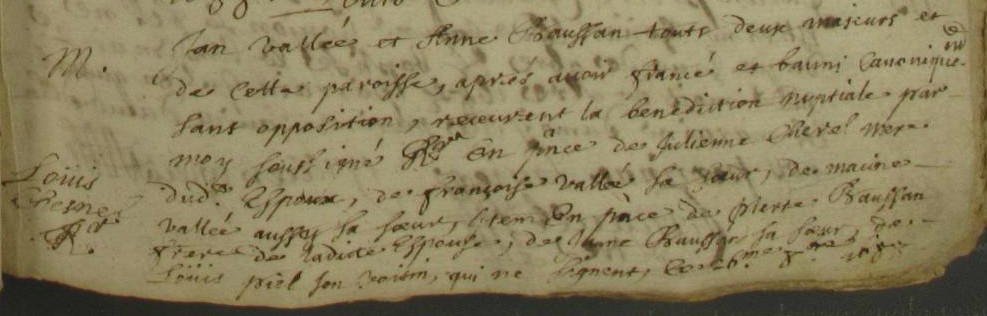 M.
Jan Vallée et Anne Baussan touts deux majeurs et
de cette paroisse, apres avoir francé et banni Canonique-
sans opposition, receurent la benediction nuptiale par
moy soussigné En pñce de Julienne Chevel mere
dud. Espoux, de françoise Vallée sa sœur, de macine
Vallée aussy sa sœur, item En pñce de pierre Baussan
frere de ladicte Espouse, de Janne Baussan sa sœur, de
Louis piel son voisin, qui ne signent,
Louis
Chesnel